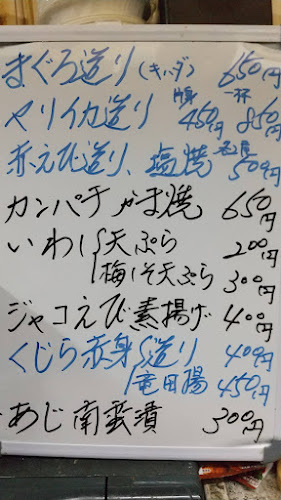 まぐろ造り(キハダ) 650円
半身 一杯
ヤリイカ造り 450円 850円
赤えび造り、塩焼 500円
カンパチかま焼 650円
いわし 天ぷら 200円
梅しそ天ぷら 300円
ジャコえび素揚げ 400円
くじら赤身 造り 400円
竜田揚 450円
あじ南蛮漬 300円